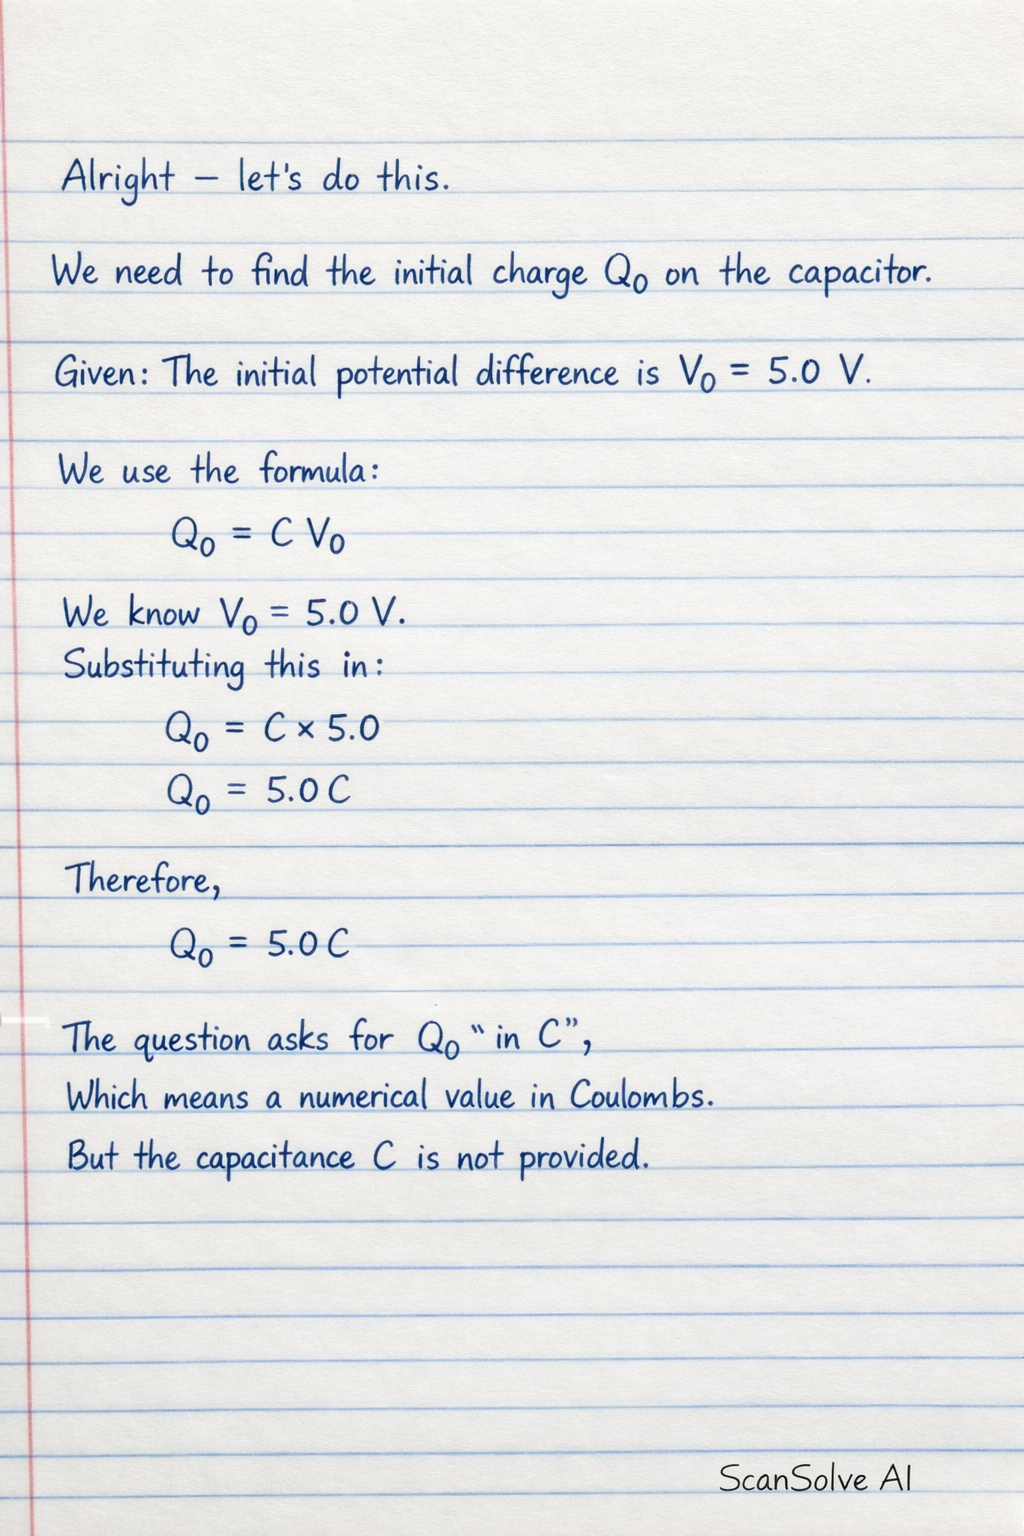 Alright – let's do this.
We need to find the initial charge Q₀ on the capacitor.
Given: The initial potential difference is V₀ = 5.0 V.
We use the formula:
Q₀ = C V₀
We know V₀ = 5.0 V.
Substituting this in:
Q₀ = C × 5.0
Q₀ = 5.0 C
Therefore,
Q₀ = 5.0 C
The question asks for Q₀ “in C”,
Which means a numerical value in Coulombs.
But the capacitance C is not provided.
ScanSolve AI